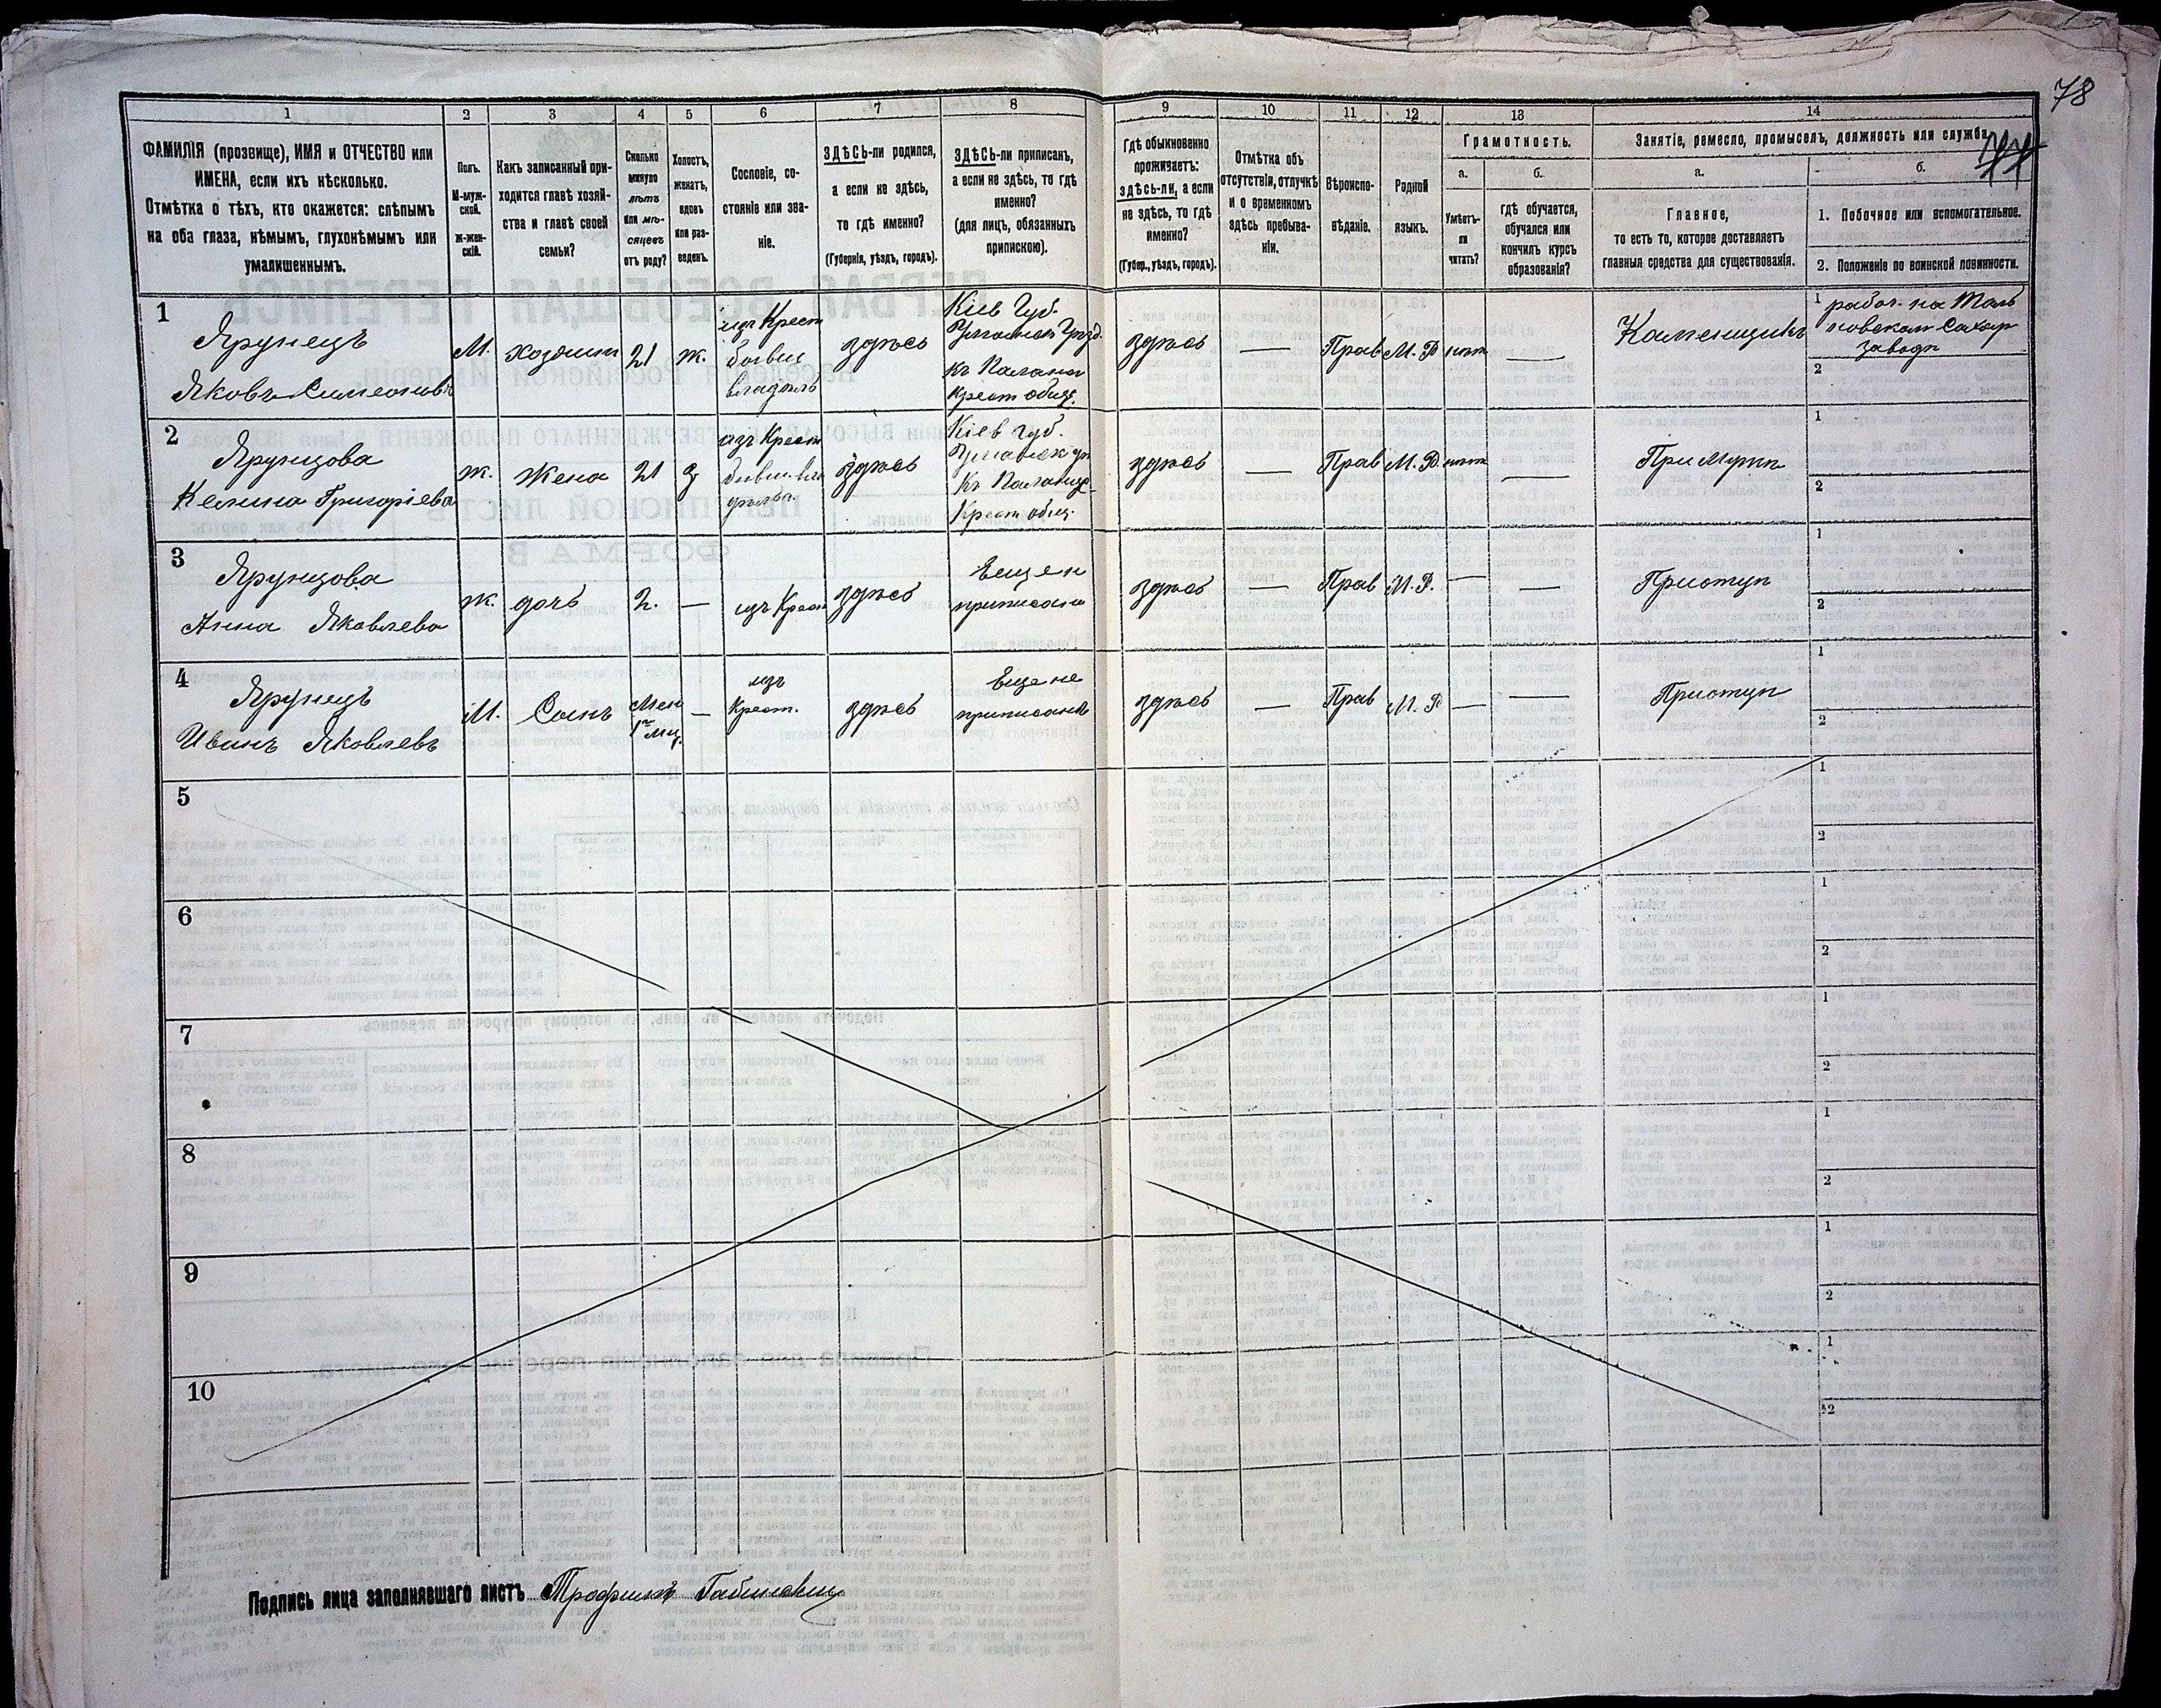 78
77
1
2
3
4
5
6
7
8
9
10
11
12
13
14
ФАМИЛІЯ (прозвище), ИМЯ и ОТЧЕСТВО или
ИМЕНА, если ихъ нѣсколько.
Отмѣтка о тѣхъ, кто окажется: слѣпымъ
на оба глаза, нѣмымъ, глухонѣмымъ или
умалишеннымъ.
Полъ.
М-муж-
ской.
Ж-жен-
скій.
Какъ записанный при-
ходится главѣ хозяй-
ства и главѣ своей
семьи?
Сколько
минуло
лѣтъ
или мѣ-
сяцевъ
отъ роду?
Холостъ,
женатъ,
вдовъ
или раз-
веденъ.
Сословіе, со-
стояніе или зва-
ніе.
ЗДѢСЬ-ли родился,
а если не здѣсь,
то гдѣ именно?
(Губернія, уѣздъ, городъ).
ЗДѢСЬ-ли приписанъ,
а если не здѣсь, то гдѣ
именно?
(для лицъ, обязанныхъ
припискою).
Гдѣ обыкновенно
проживаетъ:
здѣсь-ли, а если
не здѣсь, то гдѣ
именно?
(Губер., уѣздъ, городъ).
Отмѣтка объ
отсутствіи, отлучкѣ
и о временномъ
здѣсь пребыва-
ніи.
Вѣроиспо-
вѣданіе.
Родной
языкъ.
Грамотность.
а.
Умѣетъ-
ли
читать?
б.
гдѣ обучается,
обучался или
кончилъ курсъ
образованія?
Занятіе, ремесло, промыселъ, должность или служба.
а.
Главное,
то есть то, которое доставляетъ
главныя средства для существованія.
б.
1. Побочное или вспомогательное.
2. Положеніе по воинской повинности.
1
Ярунецъ
Яковъ Симеоновъ
М.
хозяин
21
ж.
изъ Крест
бывш
владѣль
здѣсь
Кіев Губ.
Уманск Уѣзд.
къ Палан
крест общ.
здѣсь
—
Прав
М. Р
нѣт
—
Каменщикъ
1 рабоч. на Таль
новском Сахар
заводѣ
2
2
Ярунцова
Келина Григоріева
ж.
Жена
21
з
изъ Крест
бывш. вла
дѣльч.
здѣсь
Кіев губ.
Уманск у
къ Паланц
Крест общ.
здѣсь
—
Прав
М. Р.
нѣт
—
При мужѣ
1
2
3
Ярунцова
Анна Яковлева
ж.
дочь
2.
—
изъ Крест
здѣсь
Еще н
приписана
здѣсь
—
Прав
М. Р.
—
—
При отцѣ
1
2
4
Ярунецъ
Иванъ Яковлевъ
М.
Сынъ
Мен
1го мц.
—
изъ
Крест.
здѣсь
Еще не
приписанъ
здѣсь
—
Прав
М. Р
—
—
При отцѣ
1
2
5
1
2
6
1
2
7
1
2
8
1
2
9
1
2
10
1
2
Подпись лица заполнявшаго листъ Трофимъ